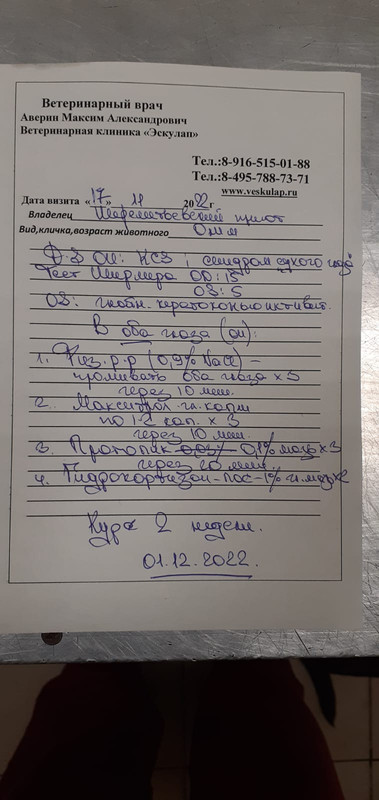 Ветеринарный врач
Аверин Максим Александрович
Ветеринарная клиника «Эскулап»
Тел.:8-916-515-01-88
Тел.:8-495-788-73-71
www.veskulap.ru
Дата визита «17» 11 2022 г.
Владелец Шереметьевский приют
Вид,кличка,возраст животного
Д-з OU: ; синдром сухого глаза
Тест Ширмера OD: 15
OS: 5
OS: гнойн. кератоконъюнктивит.
В оба глаза (OU):
1. Физ. р-р (0,9% NaCl) –
промывать оба глаза х 3
через 10 мин.
2. Макситрол гл. капли
по 1-2 кап. х 3
через 10 мин.
3. Протопик 0,03% 0,1% мазь х 3
через 20 мин.
4. Гидрокортизон-пос-1% гл. мазь х 2
Курс 2 недели.
01.12.2022.